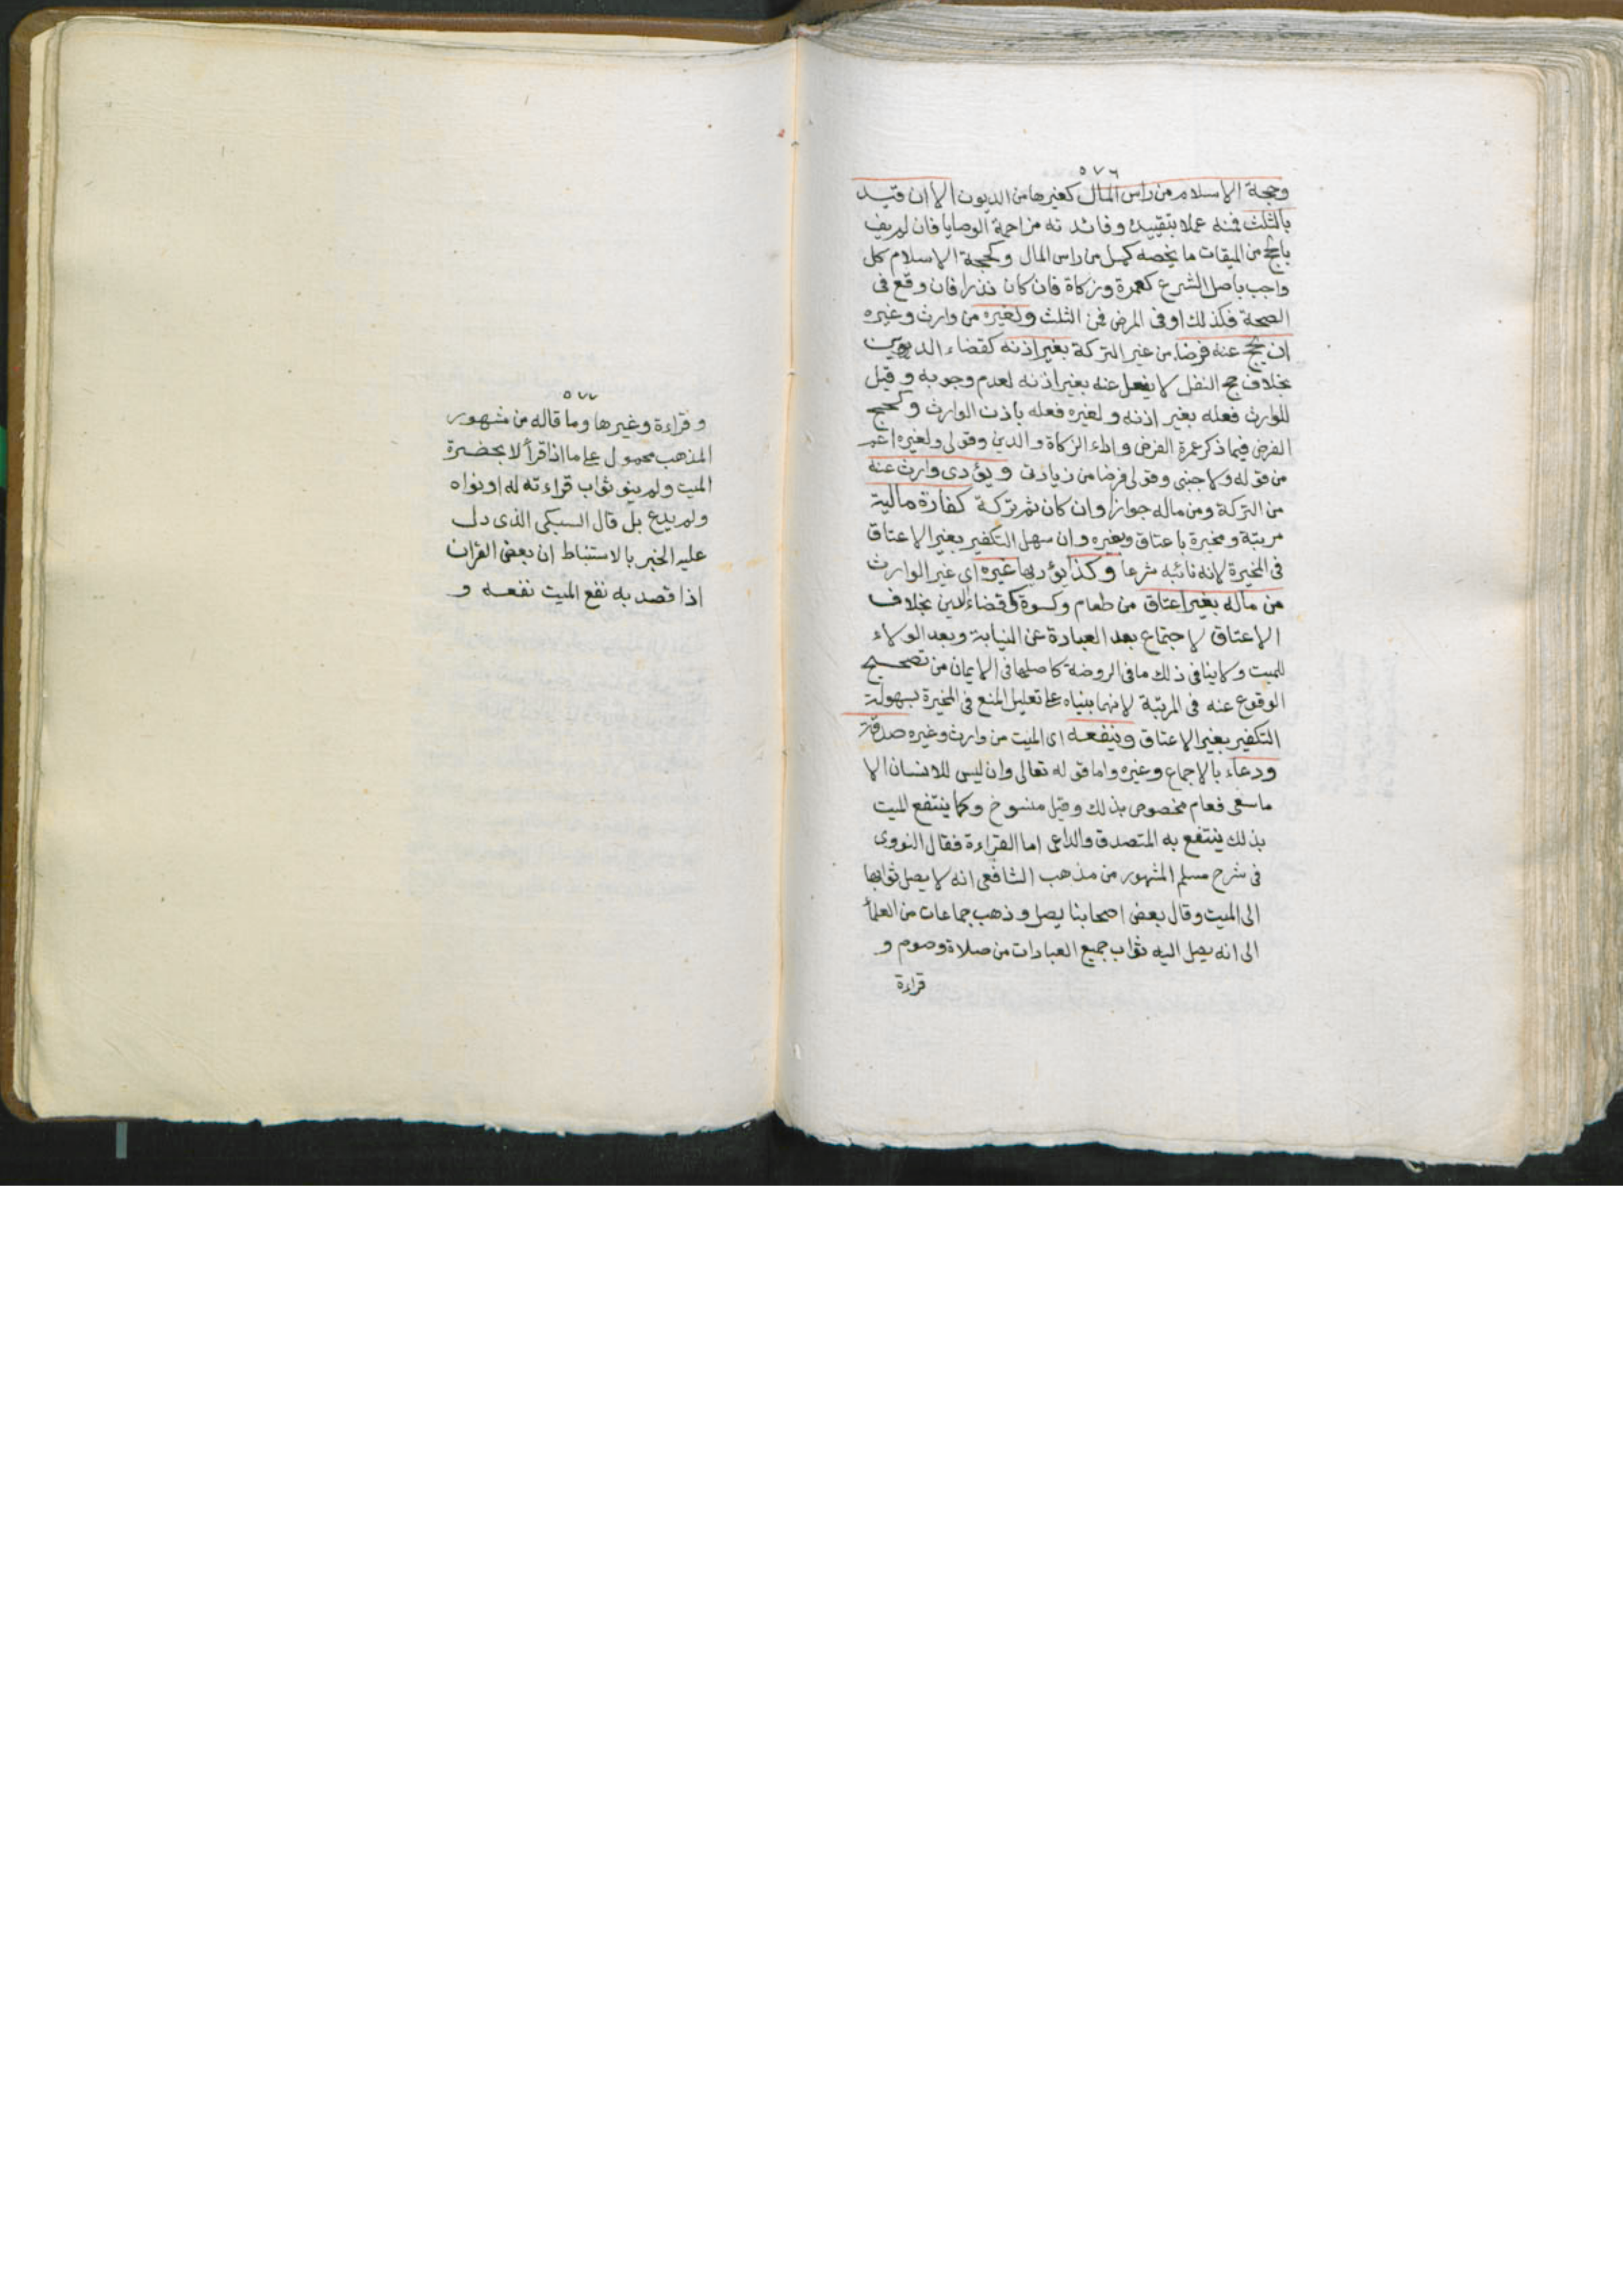 ٥٧٦
وحجة الاسلام من راس المال كغيرها من الديون الا ان قيد
بالثلث فمنه عملا بتقييده وفائدته مزاحمة الوصايا فان لم يف
بالحج من الميقات ما يخصه كمل من راس المال وكحجة الاسلام كل
واجب باصل الشرع كعمرة وزكاة فان كان نذرا فان وقع فى
الصحة فكذلك او فى المرض فمن الثلث ولغيره من وارث وغيره
ان يحج عنه فرضا من غير التركة بغير اذنه كقضاء الديون
بخلاف حج النفل لا يفعل عنه بغير اذنه لعدم وجوبه وقيل
للوارث فعله بغير اذنه ولغيره فعله باذن الوارث وكحج
الفرض فيما ذكر عمرة الفرض واداء الزكاة والدين وقولى ولغيره اعم
من قوله ولاجنبى وقولى فرضا من زيادتى ويؤدى وارث عنه
من التركة ومن ماله جوازا وان كان ثم تركة كفارة مالية
مرتبة ومخيرة باعتاق وبغيره وان سهل التكفير بغير الاعتاق
فى المخيرة لانه نائبه شرعا وكذا يؤديها غيره اى غير الوارث
من ماله بغير اعتاق من طعام وكسوة كقضاء الدين بخلاف
الاعتاق لاجتماع بعد العبادة عن النيابة وبعد الولاء
للميت ولا ينافى ذلك ما فى الروضة كاصلها فى الايمان من تصحيح
الوقوع عنه فى المرتبة لانهما بنياه على تعليل المنع فى المخيرة بسهولة
التكفير بغير الاعتاق وينفعه اى الميت من وارث وغيره صدقة
ودعاء بالاجماع وغيره واما قوله تعالى وان ليس للانسان الا
ما سعى فعام مخصوص بذلك وقيل منسوخ وكما ينتفع الميت
بذلك ينتفع به المتصدق والداعى اما القراءة فقال النووى
فى شرح مسلم المشهور من مذهب الشافعى انه لا يصل ثوابها
الى الميت وقال بعض اصحابنا يصل وذهب جماعات من العلمأ
الى انه يصل اليه ثواب جميع العبادات من صلاة وصوم و
قراءة
٥٧٧
وقراءة وغيرها وما قاله من مشهور
المذهب محمول على ما اذا قرأ لا بحضرة
الميت ولم ينو ثواب قراءته له او نواه
ولم يدع بل قال السبكى الذى دل
عليه الخبر بالاستنباط ان بعض القرأن
اذا قصد به نفع الميت نفعه و